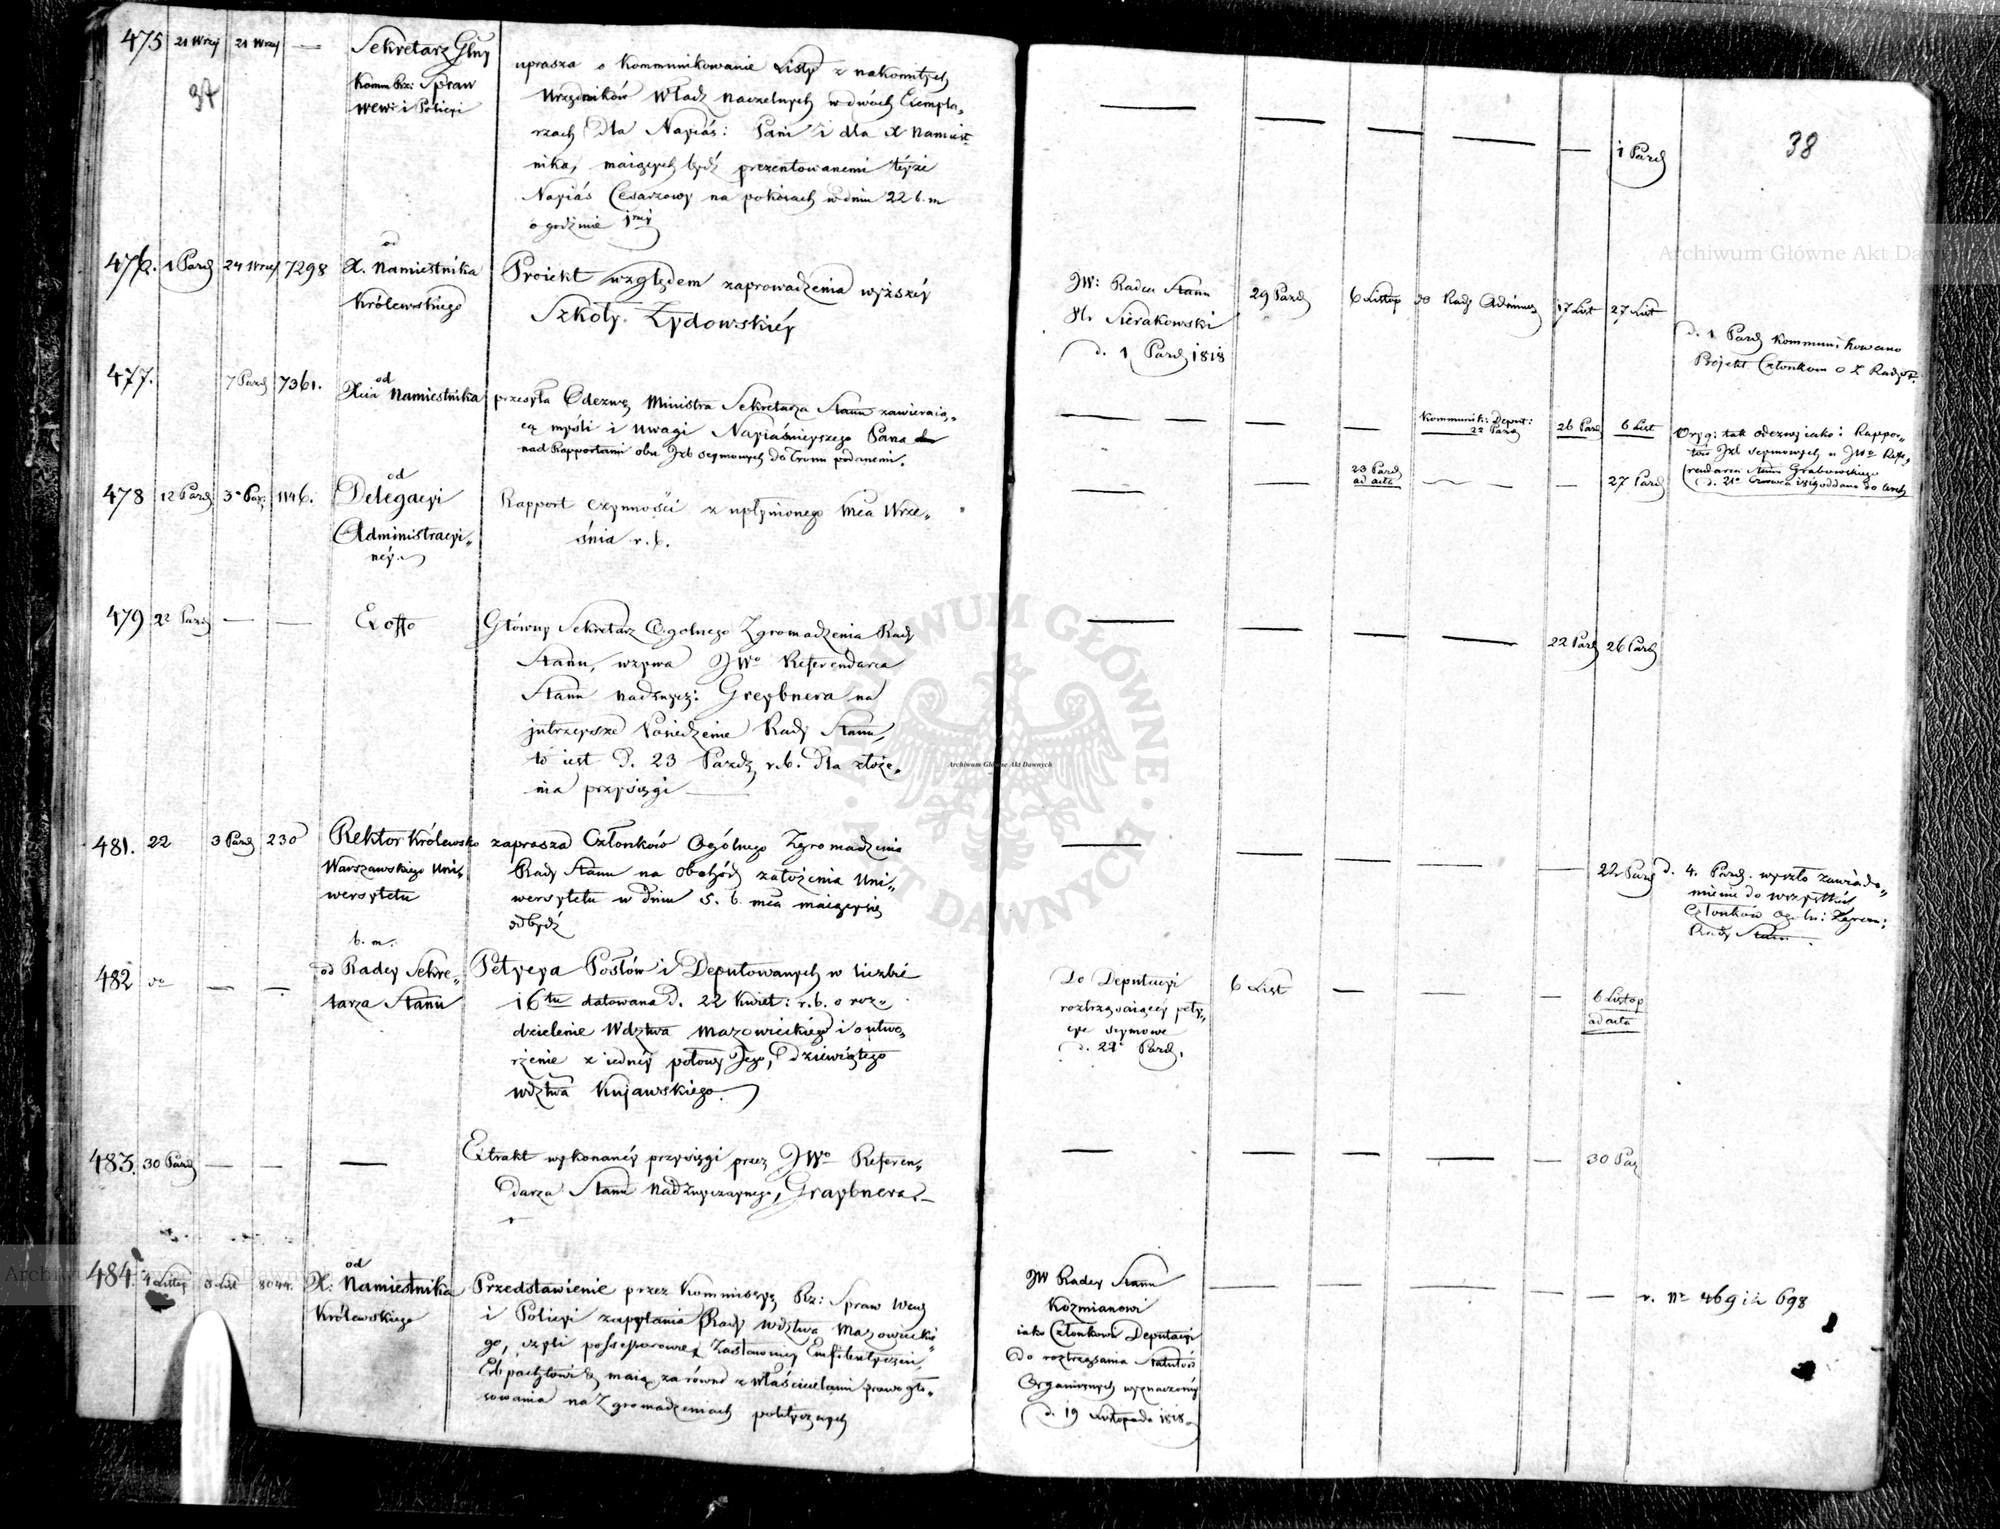 475 21 Wrzś 21 Wrzś — Sekretarz Głny
Komm Rz: Spraw
Wew: i Policyi
37
uprasza o kommunikowanie Listy znakomitych
Urzędników Władz Naczelnych w dwóch Exempla„
rzach dla Nayiaś: Pani i dla X Namiest
nika, maiących bydź prezentowanemi teyże
Nayiaś Cesarzowy na pokoiach w dniu 22 b. m
o godzinie
— — — — — 1 Pazd
38
476. 1 Pazd 24 Wrześ 7298 od
X. Namiestnika
Królewskiego
Proiekt względem zaprowadzenia wyższey
Szkoły Żydowskiey
JW: Radca Stanu
Hr Sierakowski
d. 1 Pazd 1818
29 Pazd 6 Listop do Rady Adminis 17 List 27 List
d. 1 Pazd kommunikowano
Projekt Członkom
477. 7 Pazd 7361. od
Xcia Namiestnika
przesyła Odezwę Ministra Sekretarza Stanu zawieraią„
cą myśli i uwagi Nayiaśnieyszego Pana
nad Rapportami obu Izb seymowych do Tronu podanemi.
— — — Kommunik: Deput:
22 Pazd
26 Paz 6 List
Oryg: tak odezwy iako i Rappo„
tów Izb seymowych u JWo Refe„
rendarza Stanu Grabowskiego
d. 21o Czerwca 1819 oddano do
478 12 Pazd 3o Paz. 1146. od
Delegacyi
Administracyi„
ney.
Rapport czynności z upłynionego Mca Wrze„
śnia r. b.
— — 23 Pazd
ad acta
— — 27 Pazd
479 22 Pazd — — Ex offo
Główny Sekretarz Ogolnego Zgromadzenia Rady
Stanu, wzywa JWo Referendarza
Stanu nadzwycz: Greybnera na
jutrzeysze Posiedzenie Rady Stanu,
to iest d. 23 Pazdz r. b. dla złoże„
nia przysięgi —
— — — — 22 Pazd 26 Pazd
481. 22 3 Pazd 230 Rektor Królewsko
Warszawskiego Uni„
wersytetu
zaprasza Członków Ogólnego Zgromadzenia
Rady Stanu na obchód założenia Uni„
wersytetu w dniu 5. b. mca maiący się
odbydź
— — — — — 22 Pazd
d. 4. Pazd. wyszło zawiado„
mienie do wszystkich
Członków Ogoln: Zgrom:
Rady Stanu.
482 do — — b. m.
od Radcy Sekre„
tarza Stanu
Petycya Posłów i Deputowanych w liczbie
16tu datowana d. 22 Kwiet: r. b. o roz„
dzielenie Wdztwa Mazowieckiego i o utwo„
rzenie z iedney połowy Jego, dziewiątego
Wdztwa Kujawskiego.
Do Deputacyi
roztrząsaiącéy pety„
cye seymowe
d. 22o Pazd.
6 List — — — 6 Listop
ad acta
483. 30 Pazd — — —
Extrakt wykonaney przysięgi przez JWo Referen„
darza Stanu Nadzwyczaynego, Graybnera.—
— — — — — 30 Paz
484. 4 Listop 3 List 8044. od
X. Namiestnika
Królewskiego
Przedstawienie przez Kommissyą Rz: Spraw Wew
i Policyi zapytania Rady Wdztwa Mazowieckie„
go, czyli possessorowie Zastawnicy Emfiteutyczni,
maią zarówno z właścicielami prawo gło„
sowania na Zgromadzeniach politycznych
JW Radcy Stanu
Kozmianowi
iako Członkowi Deputacyi
do roztrząsania Statutów
Organicznych wyznaczoney
d. 19 Listopada 1818
— — — — — v. No 469 i 698
Archiwum Główne Akt Dawnych
ARCHIWUM GŁÓWNE · AKT DAWNYCH ·